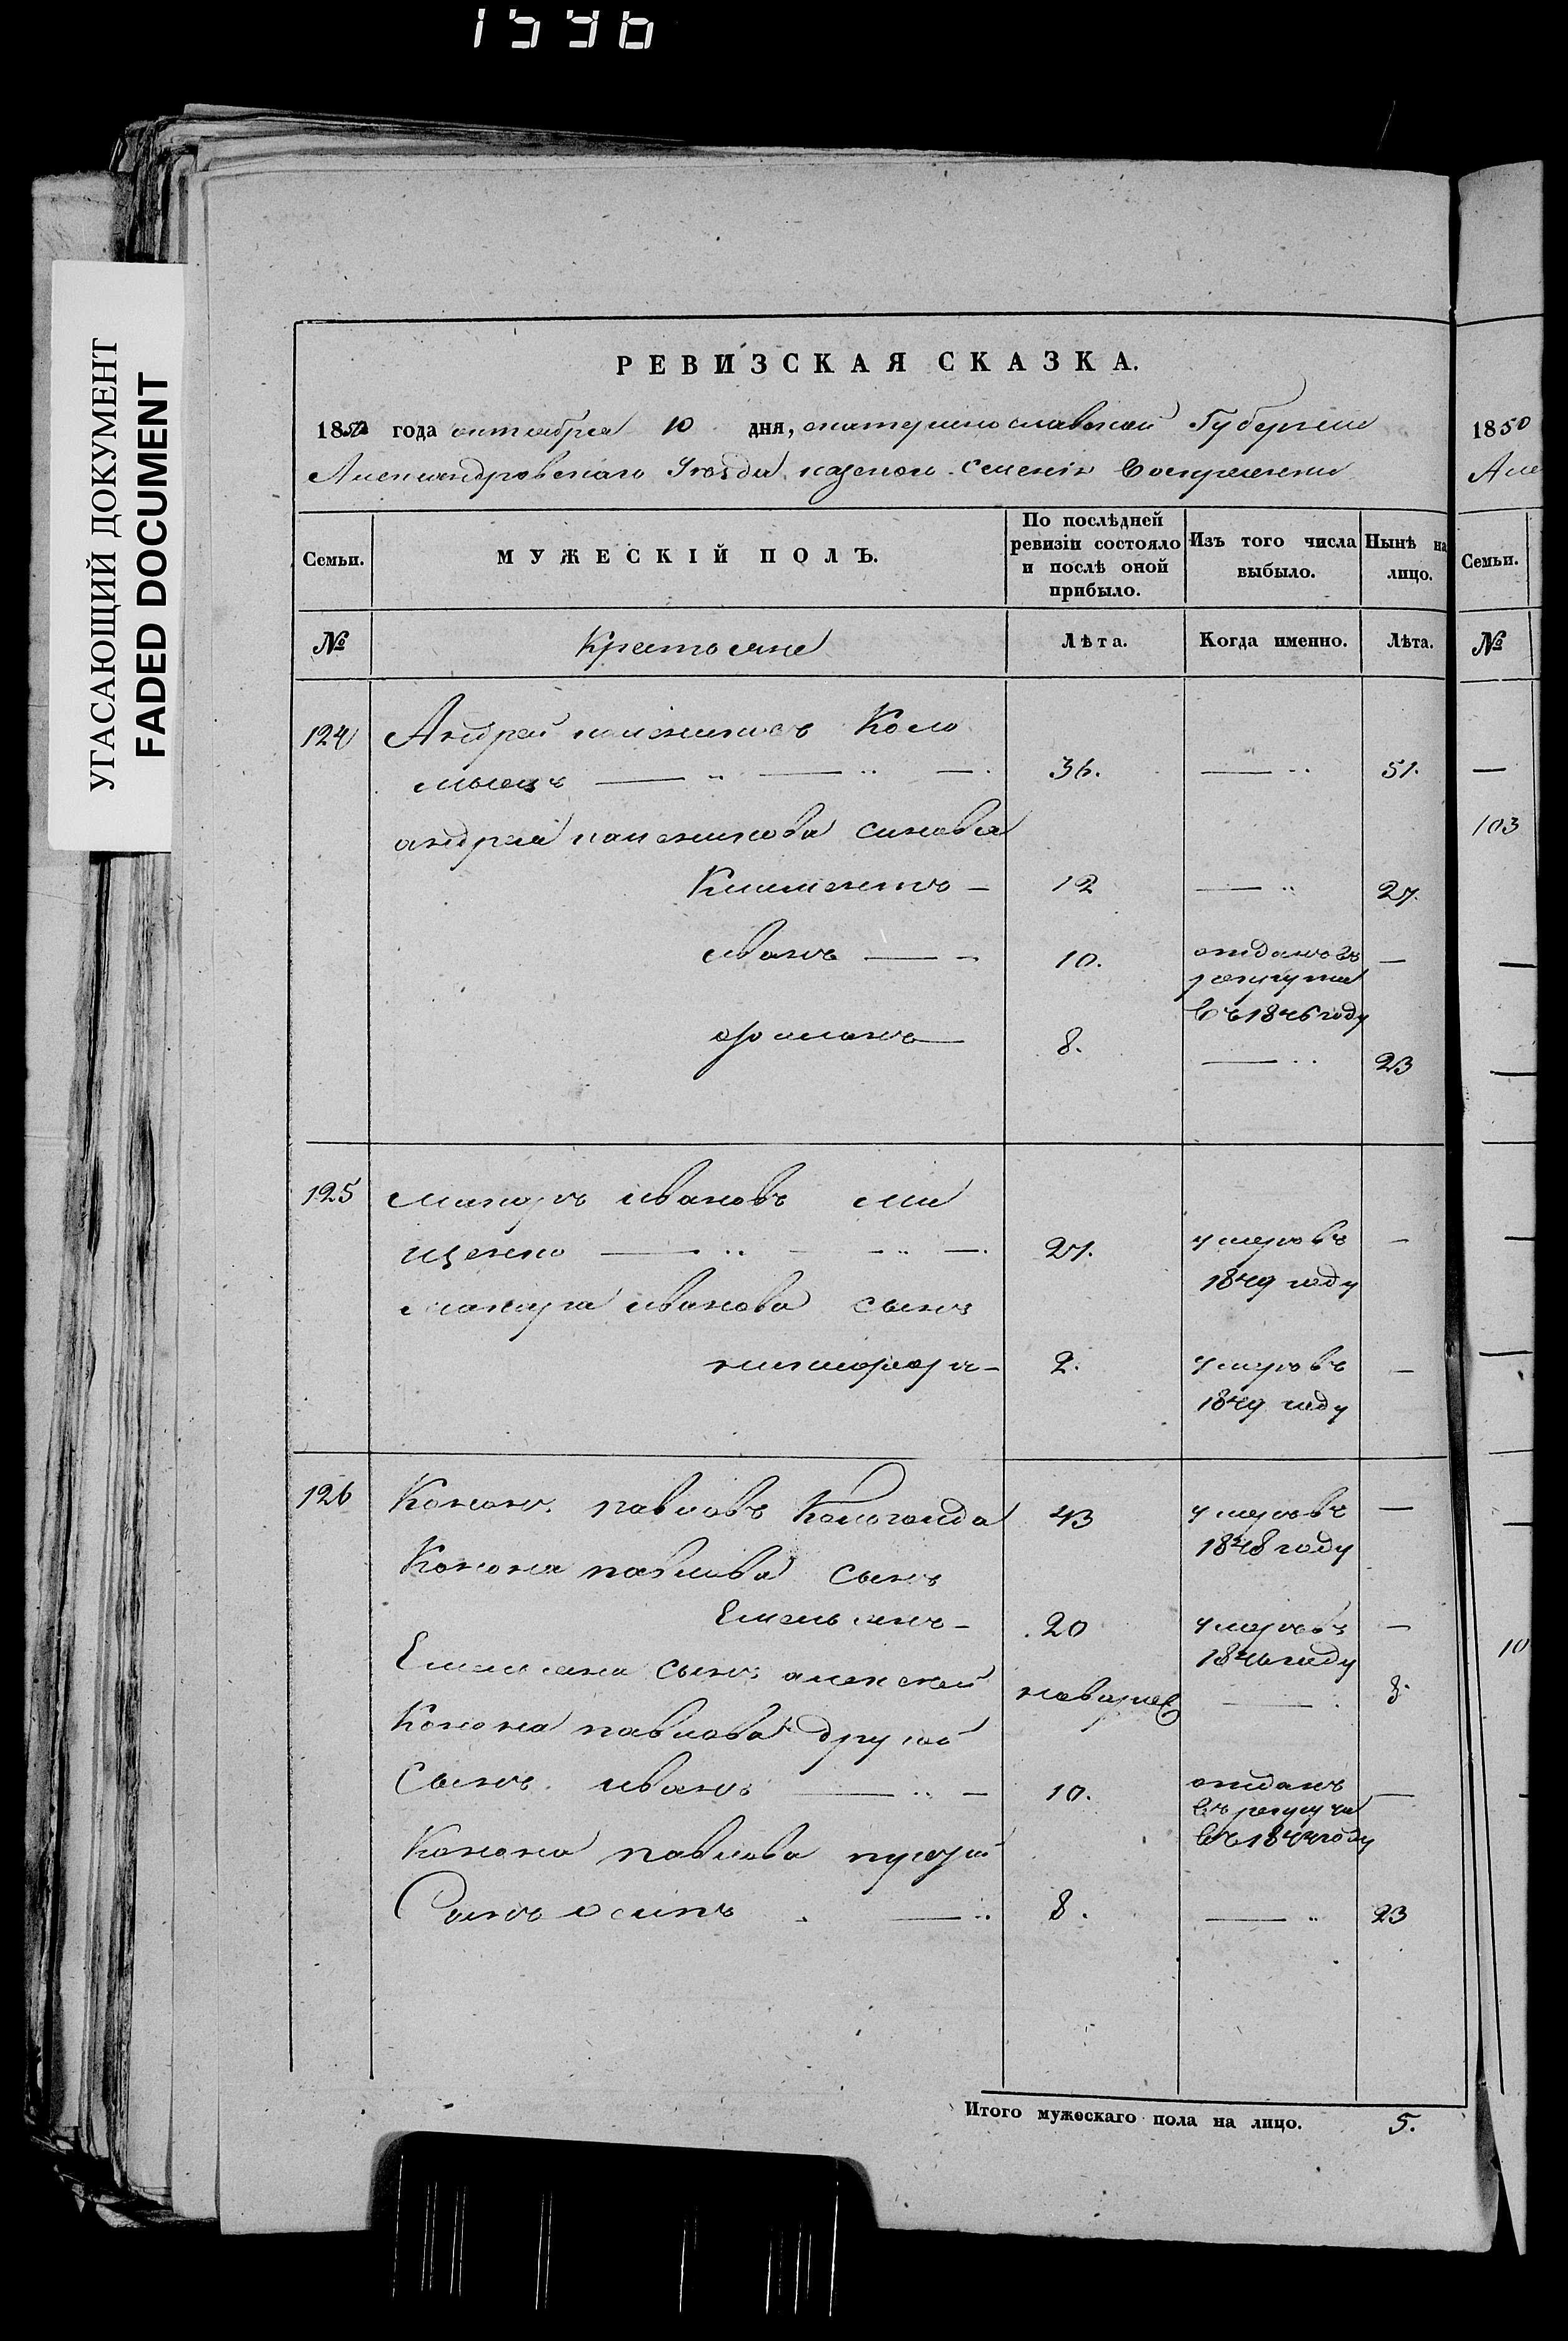 1596
УГАСАЮЩИЙ ДОКУМЕНТ
FADED DOCUMENT
РЕВИЗСКАЯ СКАЗКА.
1850 года октября 10 дня, екатеринославской Губернии
Александровскаго Уезда казенои селенія Воскресенки
Семьи. МУЖЕСКІЙ ПОЛЪ. По послѣдней ревизіи состояло и послѣ оной прибыло. Изъ того числа выбыло. Нынѣ на лицо.
№ Крестьяне Лѣта. Когда именно. Лѣта.
124 Андрей Коло
мыецъ 36. 51.
андрея синовья
Климентъ 12 27.
иванъ 10. отданъ въ
рекруты
въ 1846 году
8. 23
125 макаръ ивановъ ми
щенко 27. умеръ въ
1849 году
макара иванова сынъ
никифоръ 2. умеръ въ
1849 году
126 Кононъ павловъ 43 умеръ въ
1848 году
Конона павлова сынъ
Емельянъ 20 умеръ въ
1846 году
Емельяна сынъ алексей новорж 8.
Конона павлова другой
Сынъ иванъ 10. отданъ
въ рекруты
въ 1844 году
Конона павлова третій
Сынъ осипъ 8. 23
Итого мужескаго пола на лицо. 5.
1850
Але
Семьи.
№
103
10